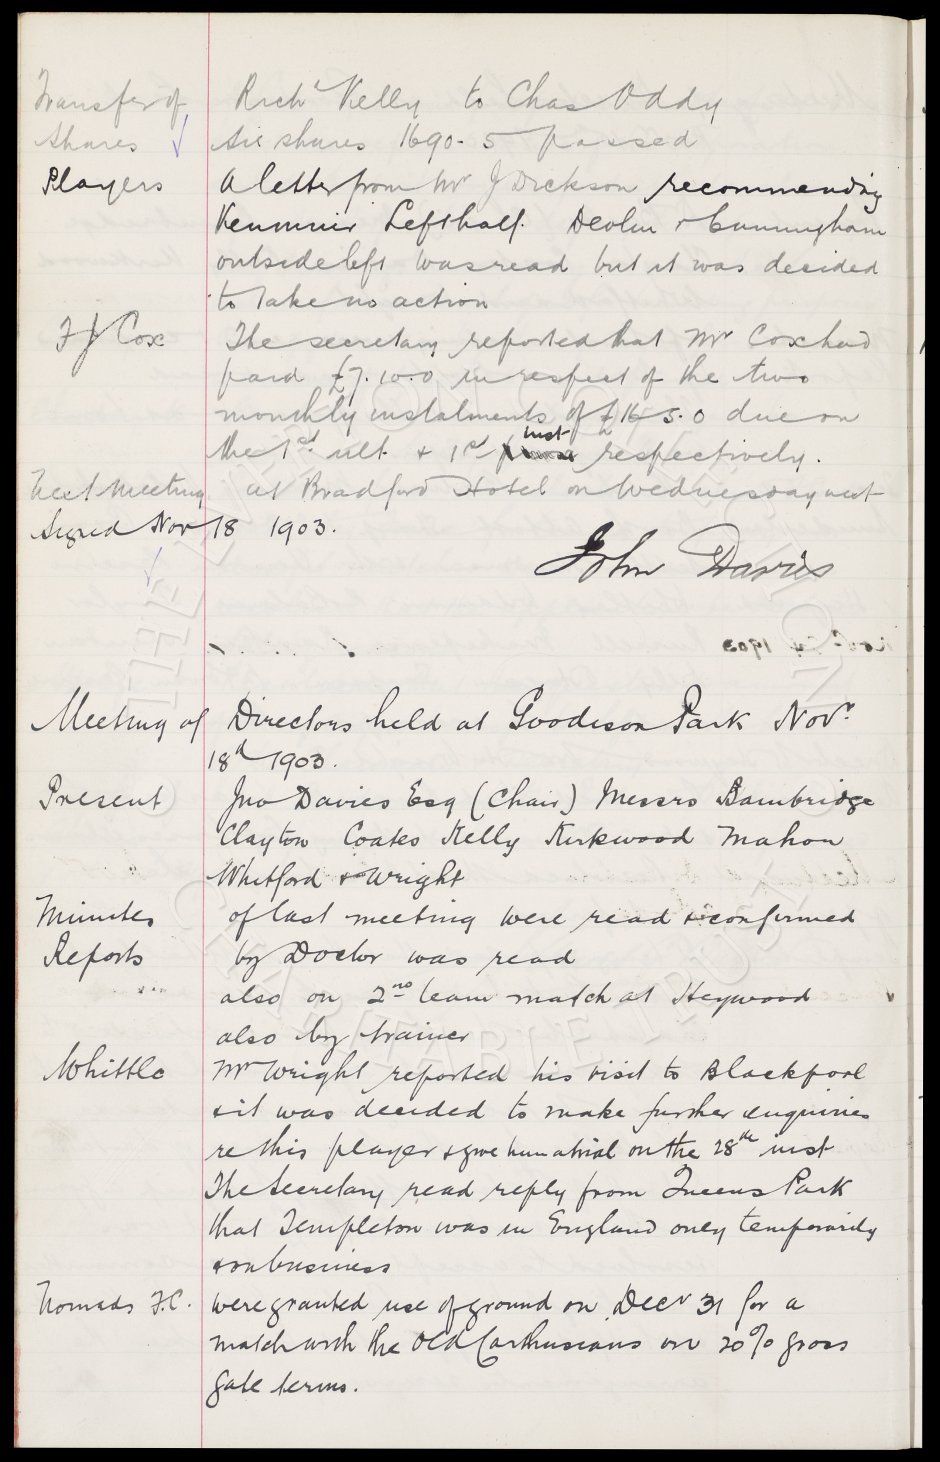 Transfer of Richd Kelly to Chas Oddy
shares six shares 1690-5 passed
Players A letter from Mr J Dickson recommending
Kenmuir Left half. Devlin & Cunningham
outside left was read but it was decided
to take no action
F J Cox The secretary reported that Mr Cox had
paid £7.10.0 in respect of the two
monthly instalments of £ 5.0 due on
the 1st ult. & 1st inst respectively.
Next Meeting at Bradford Hotel on Wednesday next
Signed Nov 18 1903.
John Davies
Meeting of Directors held at Goodison Park Novr
18th 1903.
Present Jno Davies Esq (Chair) Messrs Bainbridge
Clayton Coates Kelly Kirkwood Mahon
Whitford & Wright
Minutes of last meeting were read & confirmed
Reports by Doctor was read
also on 2nd team match at Heywood
also by trainer
Whittle Mr Wright reported his visit to Blackpool
& it was decided to make further enquiries
re this player & give him a trial on the 28th inst
The Secretary read reply from Queens Park
that Templeton was in England only temporarily
& on business
Nomads F.C. were granted use of ground on Decr 31 for a
match with the Old Carthusians on 20% gross
gate terms.